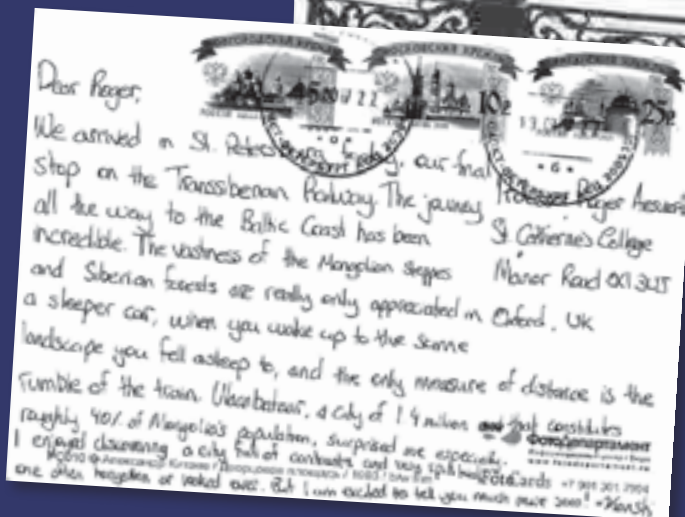 Dear Roger,
We arrived in St. our final
stop on the Transsiberian Railway. The journey
all the way to the Baltic Coast has been
incredible. The vastness of the Mongolian steppes
and Siberian forests are really only appreciated in
a sleeper car, when you wake up to the same
landscape you fell asleep to, and the only measure of distance is the
rumble of the train. Ulaanbataar, a city of 1.4 million that constitutes
roughly 40% of Mongolia's population, surprised me especially.
I enjoyed discovering a city full of contrasts and very
one often forgotten or looked over. But I am excited to tell you much more soon!
Roger
St Catherine's College
Manor Road OX1 3UJ
Oxford, UK
10
25
ФотоДепартамент